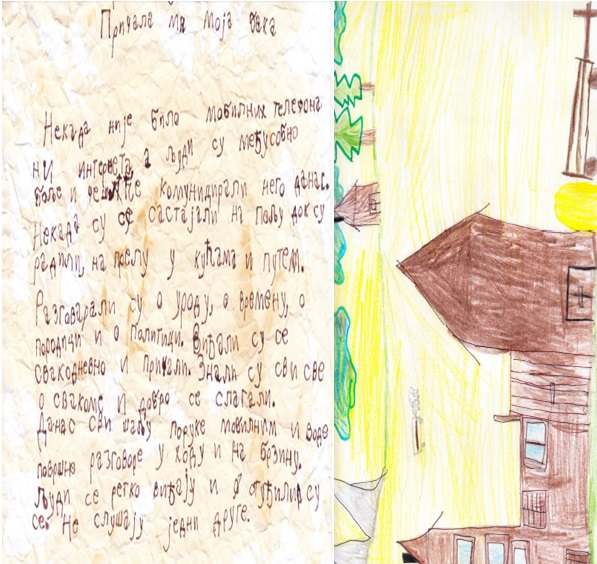 Причала ми моја бака
Некада није било мобилних телефона
ни интернета, а људи су међусобно
боље и чешће комуницирали него данас.
Некада су се састајали на пољу док су
радили, на послу у кућама и путем.
Разговарали су о уроду, о времену, о
породици и о политици. Виђали су се
свакодневно и причали. Знали су сви све
о свакоме и добро се слагали.
Данас сви шаљу поруке мобилним и воде
површне разговоре у ходу и на брзину.
Људи се ретко виђају и отуђили су
се. Не слушају једни друге.